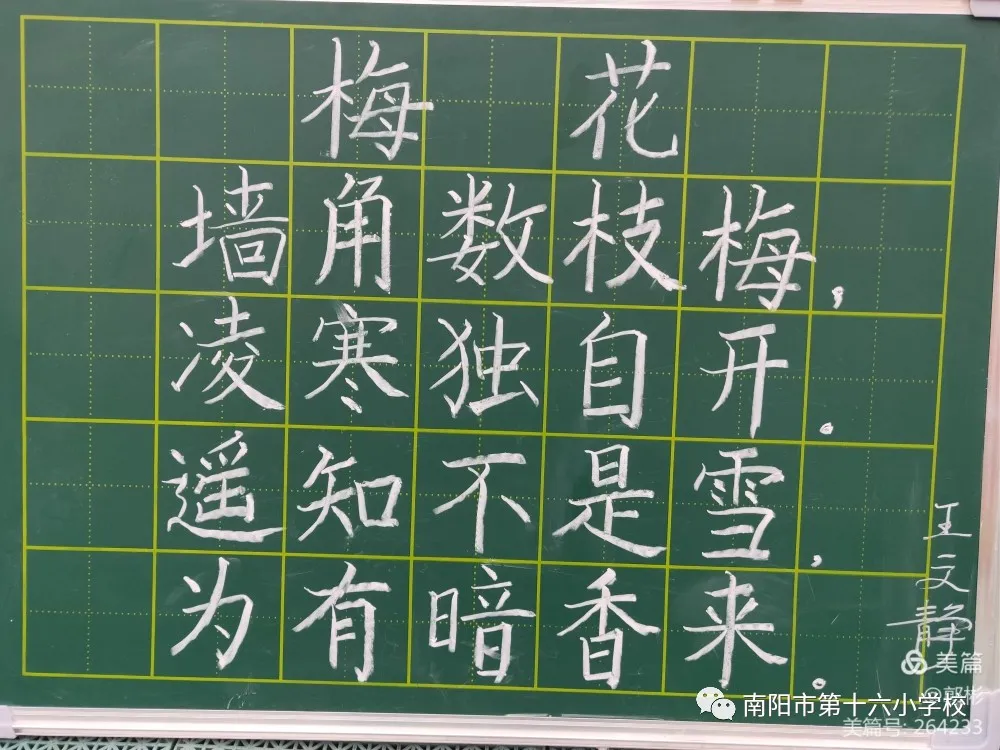 梅花
墙角数枝梅，
凌寒独自开。
遥知不是雪，
为有暗香来。
王文静
美篇
@郭彬
南阳市第十六小学校
美篇号: 264233